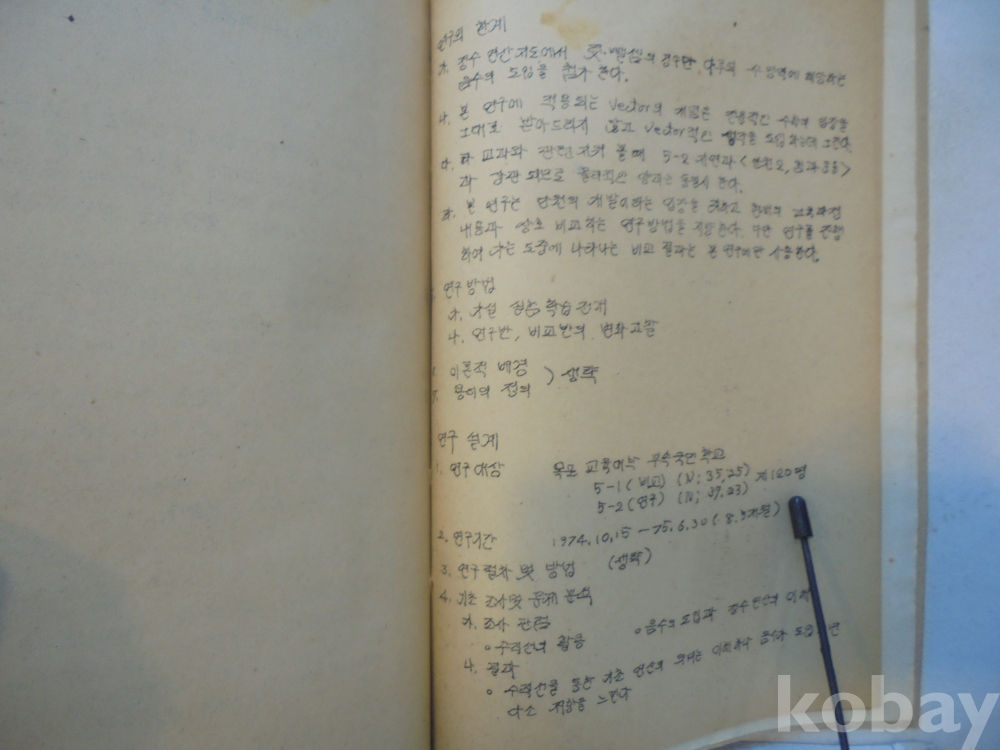 연구의 한계
가. 정수 연산 지도에서 덧·뺄셈의 경우만 다루며 수 영역에
음수의 도입을 첨가 한다.
나. 본 연구에 적용되는 Vector의 개념은 전통적인 수학의 입장을
그대로 받아드리지 않고 Vector적인 도입
다. 타 교과와 관련지켜 볼때 5-2 자연과 <단원2,
과 상관 되므로 물리적인 한다.
라. 본 연구는 단원의 개발이라는 입장을 교육과정
내용과 상호 비교하는 연구방법을 지양한다. 연구를 진행
하여 나는 도중에 나타나는 비교 결과는 본 연구에만 사용한다.
연구방법
가. 가설 검증 학습 전개
나. 연구반, 비교반의 변화 고찰
이론적 배경
용어의 정의 ) 생략
연구 설계
1. 연구대상 목포 교육대학 부속국민학교
5-1 (비교) (N; 35, 25) 계 120명
5-2 (연구) (N; 37, 23)
2. 연구기간 1974. 10. 15 — 75. 6. 30 ( 8.5개월)
3. 연구절차 및 방법 (생략)
4. 기초 조사 및 문제 분석
가. 조사 관점
○ 수직선의 활용 ○ 음수의 도입과 정수 연산의 이해
나. 결과
○ 수직선을 통한 기초 연산의 의미는 이해하나 음수가 도입
다소 저항을 느낀다
kobay